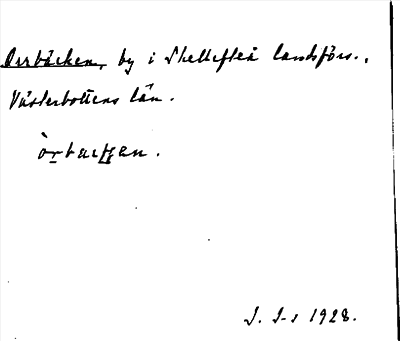 Orrbäcken, by i Skellefteå landsförs.,
Västerbottens län.
J. I-s 1928.